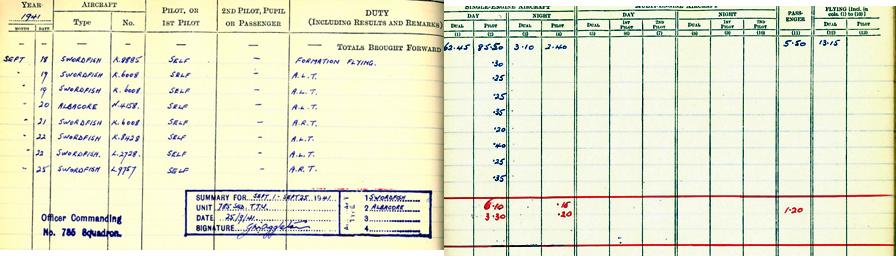 YEAR AIRCRAFT PILOT, OR 2ND PILOT, PUPIL DUTY
1941 Type No. 1ST PILOT OR PASSENGER (INCLUDING RESULTS AND REMARKS)
MONTH DATE
— — — — — — TOTALS BROUGHT FORWARD
SEPT 18 SWORDFISH K.8885 SELF — FORMATION FLYING.
19 SWORDFISH K.6008 SELF — A.L.T.
19 SWORDFISH K.6008 SELF — A.L.T.
20 ALBACORE N.4158. SELF — A.L.T.
21 SWORDFISH K.6008 SELF — A.R.T.
22 SWORDFISH K.8428 SELF — A.L.T.
22 SWORDFISH. L.2728. SELF — A.L.T.
25 SWORDFISH L9757 SELF — A.R.T.
SUMMARY FOR SEPT 1 - SEPT 25 1941 1 SWORDFISH
UNIT 785 SQD. 2 ALBACORE
DATE 25/9/41. 3
SIGNATURE 4
Officer Commanding
No. 785 Squadron.
SINGLE-ENGINE AIRCRAFT MULTI-ENGINE AIRCRAFT PASS-ENGER FLYING (Incl. in cols. (1) to (10))
DAY NIGHT DAY NIGHT
DUAL PILOT DUAL PILOT DUAL 1ST PILOT 2ND PILOT DUAL 1ST PILOT 2ND PILOT DUAL PILOT
(1) (2) (3) (4) (5) (6) (7) (8) (9) (10) (11) (12) (13)
62.45 85.50 3.10 2.40 5.50 13.15
.30
.25
.25
.35
.20
.40
.25
.35
6.10 .15
3.30 .20 1.20